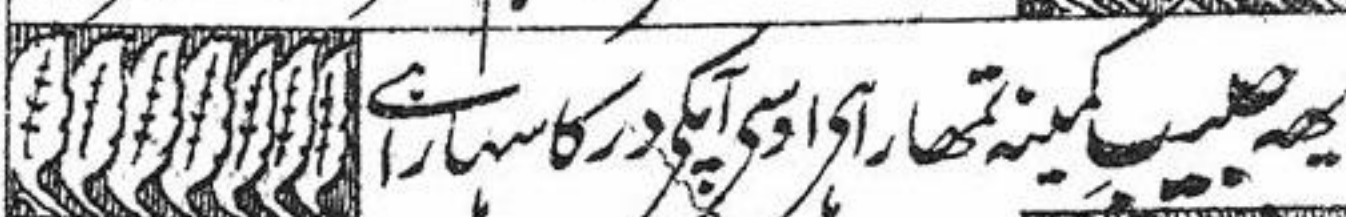 یہہ حبیب کمینہ تمھارا ہی اوسی آپکی در کا سہارا ہے